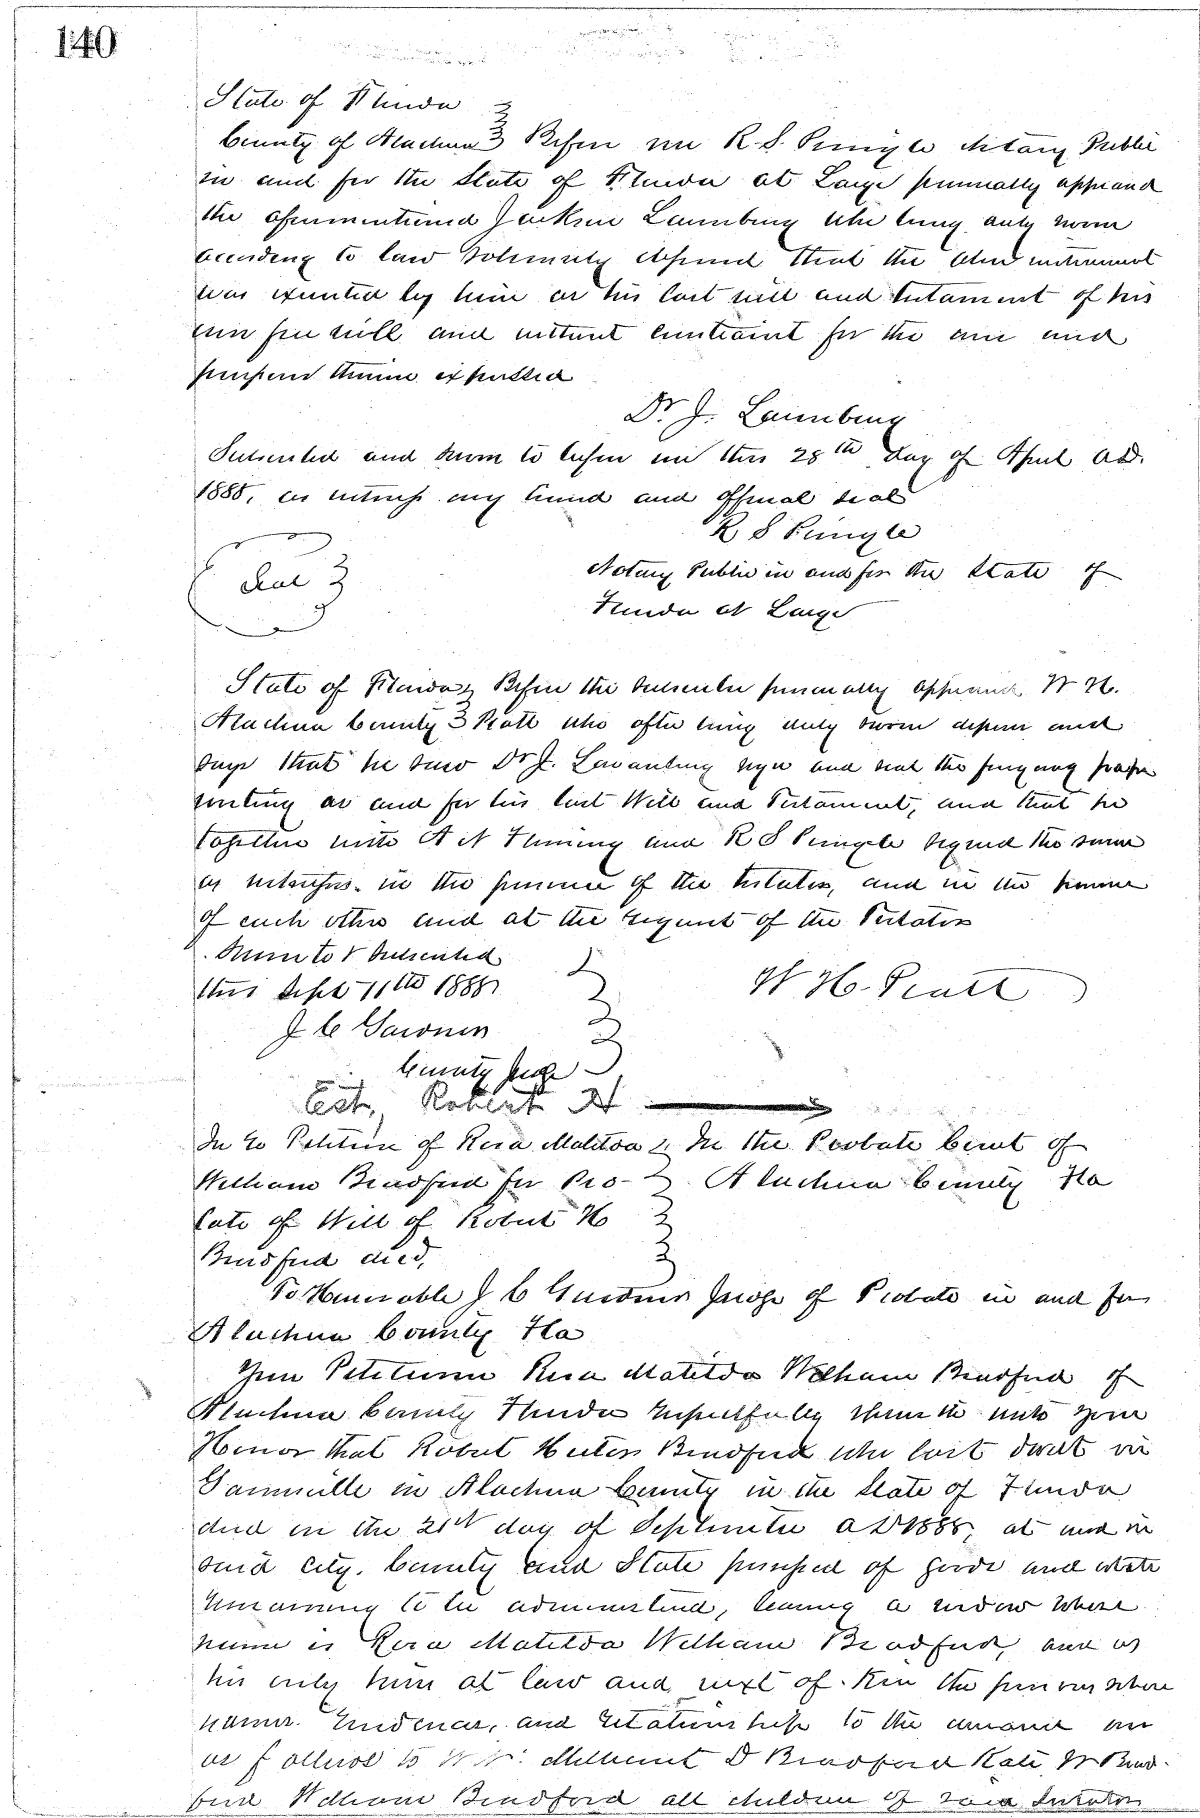 140
State of Florida
County of Alachua Before me R. S. Pringle Notary Public
in and for the State of Florida at Large personally appeared
the aforementioned Jackson Lavenberg who being duly sworn
according to law solemnly deposed that the above instrument
was executed by him as his last will and testament of his
own free will and without constraint for the use and
purposes therein expressed
Dr. J. Lavenberg
Subscribed and sworn to before me this 28th day of April A.D.
1888, as witness my hand and official seal
R S Pringle
Seal
Notary Public in and for the State of
Florida at Large
State of Florida Before the subscriber personally appeared W H.
Alachua County Peatt who after being duly sworn deposes and
says that he saw Dr J. sign and seal the foregoing paper
writing as and for his last Will and Testament, and that he
together with A N Fleming and R S Pringle signed the same
as witnesses in the presence of the testator, and in the presence
of each other and at the request of the Testator
Sworn to & subscribed
this Sept 11th 1888
W H. Peatt
J C Gardner
County Judge
Est, Robert H
In re Petition of Rosa Matilda In the Probate Court of
William Bradford for Pro- Alachua County Fla
bate of Will of Robert H
Bradford dec'd,
To Honorable J C Gardner Judge of Probate in and for
Alachua County Fla
Your Petitioner Rosa Matilda William Bradford of
Alachua County Florida respectfully showeth unto your
Honor that Robert Bradford who last dwelt in
Gainesville in Alachua County in the State of Florida
died on the 21st day of September A D 1888, at and in
said City, County and State possessed of goods and estate
remaining to be administered, leaving a widow whose
name is Rosa Matilda William Bradford, and as
his only heirs at law and next of Kin the persons whose
names residences, and relationship to the deceased are
as follows to wit: D Bradford Kate W Brad-
ford William Bradford all children of said testator